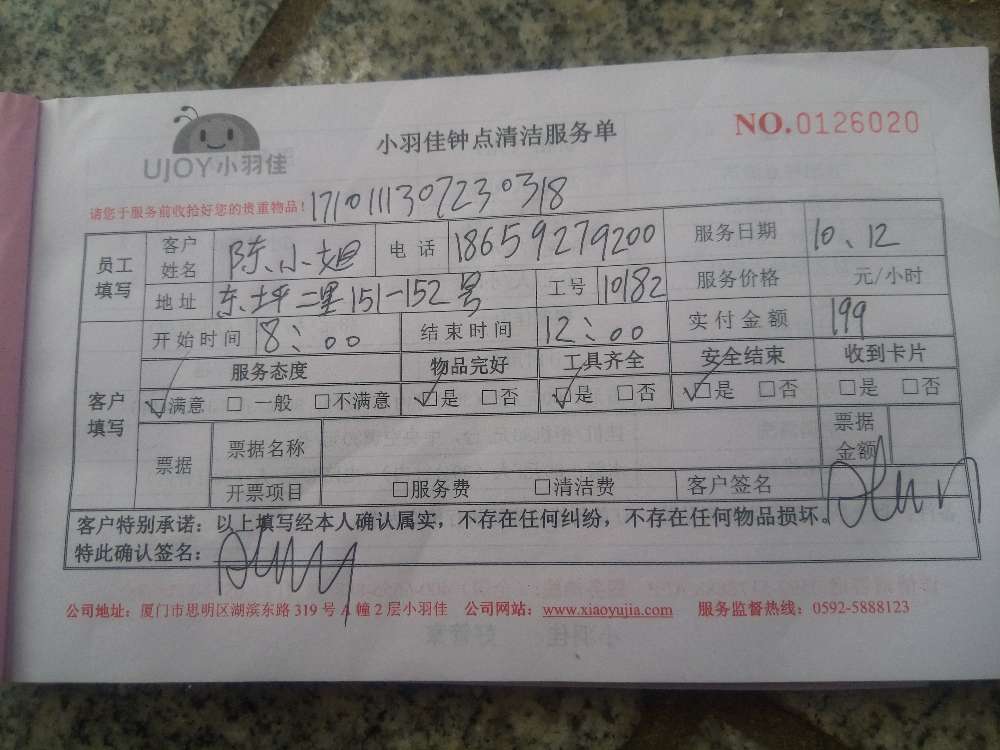 UJOY小羽佳
小羽佳钟点清洁服务单
NO.0126020
请您于服务前收拾好您的贵重物品！
1710111307230318
员工填写 客户姓名 陈小姐 电话 18659279200 服务日期 10、12
地址 东坪二里151-152号 工号 10182 服务价格 元/小时
客户填写 开始时间 8：00 结束时间 12：00 实付金额 199
服务态度 物品完好 工具齐全 安全结束 收到卡片
☑满意 □ 一般 □不满意 ☑是 □否 ☑是 □否 ☑是 □否 □是 □否
票据 票据名称 票据金额
开票项目 □服务费 □清洁费 客户签名
客户特别承诺：以上填写经本人确认属实，不存在任何纠纷，不存在任何物品损坏。
特此确认签名：
公司地址：厦门市思明区湖滨东路 319 号 A 幢 2 层小羽佳 公司网站：www.xiaoyujia.com 服务监督热线：0592-5888123